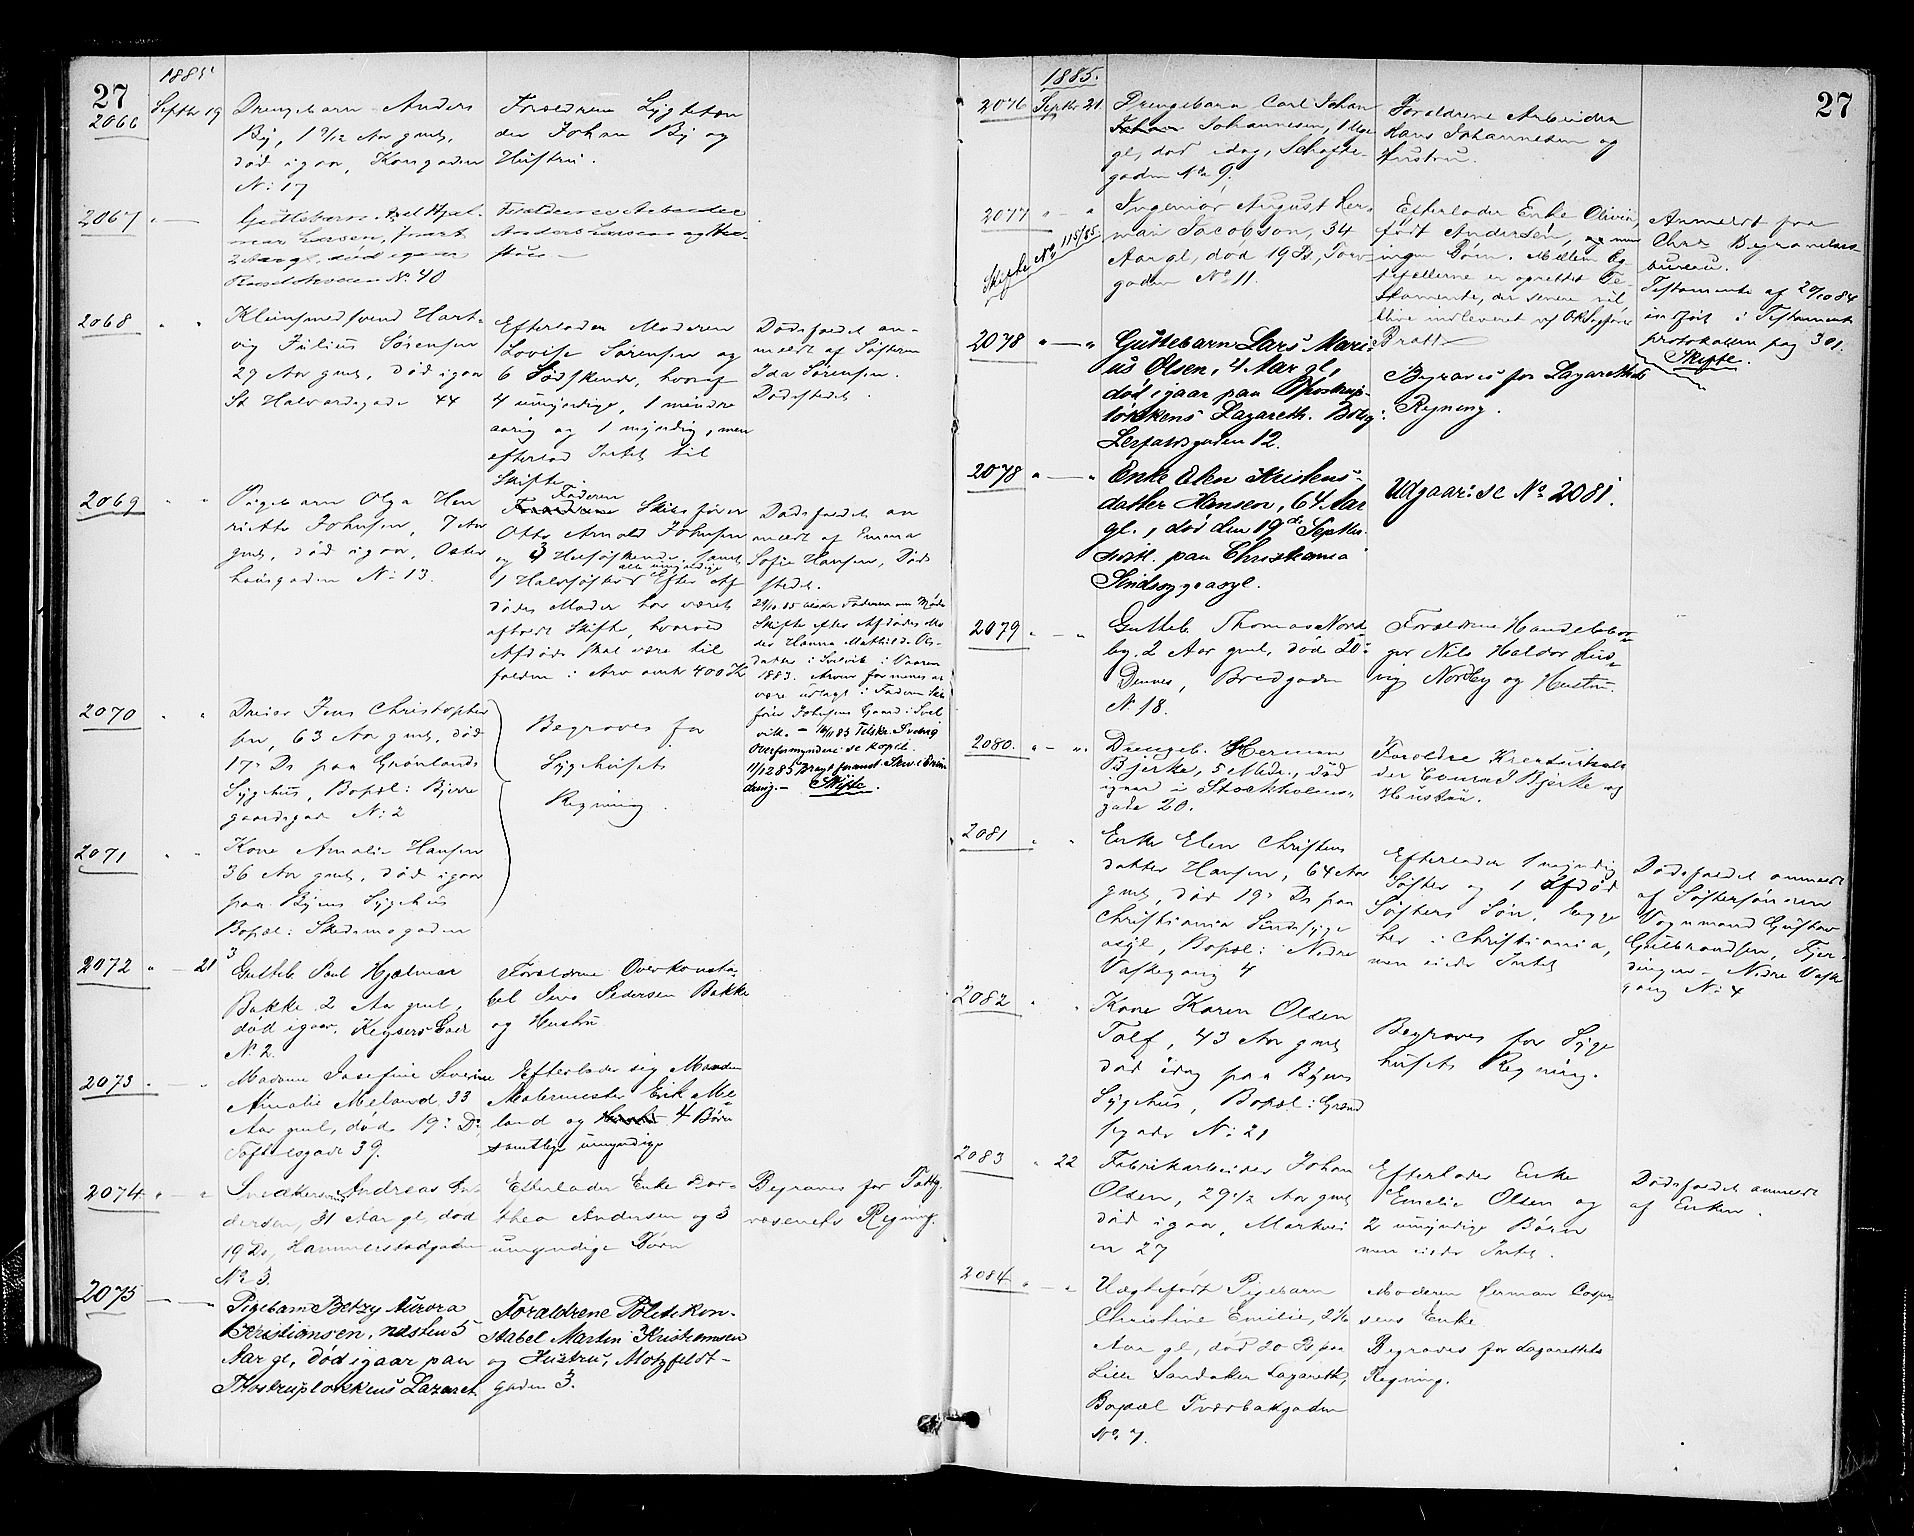 27
1885
2066
Septbr 19
Drengebarn Anders
By, 1 7/12 Aar gmlt,
død igaar, Kongaden
N: 17
Forældrene Lygteten
der Johan By og
Hustru.
2067
Guttebarn Axel Hjal-
mar Larsen, snart
2 Aar gl, død igaar
N: 40
Forældrene Arbeider
Anders Larsen og Hu-
stru
2068
Kleinsmedsvend Hart-
vig Julius Sørensen
29 Aar gml, død igaar
St Halvardsgade 44
Efterlader Moderen
Lovise Sørensen og
6 Sødskende, hvoraf
4 umyndige, 1 mindre
aarig og 1 myndig, men
efterlod Intet til
Skifte.
Dødsfaldet an-
meldt af Søsteren
Ida Sørensen.
Dødstedet.
2069
Pigebarn Olga Hen
riette Johnsen, 7 Aar
gml, død igaar, Oster
hausgaden N: 13.
Faderen
Forældrene Skibsfører
Otto Arnold Johnsen
og 3 Helsøskende, samt
alle umyndige
1 Halvsøster. Efter Af
dødes Moder har været
afholdt Skifte, hvorved
Afdøde skal være til
falden i Arv omtr 400 Kr
Dødsfaldet an
meldt af Emma
Sofie Hansen, Død
stedet.
Skifte efter Afdødes Mo
der Hanna Mathilde Ols-
datter i Svelvik i Vaaren
1883. Arven formenes at
være udlagt i Faderen Skib
fører Johnsens Gaard i Svel
vik.
Overformynderi se Kopib.
Skifte.
2070
Dreier Jens Christopher
sen, 63 Aar gml, død
17 Ds paa Grønlands
Sygehus, Bopæl: Bjerre
gaardsgad N: 2
Begraves for
Sygehusets
Regning.
2071
Kone Amalie Hansen
36 Aar gml, død igaar
paa Byens Sygehus
Bopæl: Skedsmogaden
3
2072
21
Gutteb. Paul Hjalmar
Bakke 2 Aar gml,
død igaar, Keysers Gade
N: 2.
Forældrene Overkonsta-
bel Iver Pedersen Bakke
og Hustru
2073
Madame Josefine Severine
Amalie Meland, 33
Aar gml, død 19: Ds,
Toftesgade 39.
Efterlader sig Manden
Malermester Erik Me-
land og 4 Børn
samtlige umyndige
2074
Andreas An-
dersen, 31 Aar gl, død
19 Ds, Hammerstadgaden
No 3.
Efterlader Enke Dor-
thea Andersen og 3
umyndige Børn
Begraves for Fattig-
væsenets Regning.
2075
Pigebarn Betzy Aurora
Kristiansen, næsten 5
Aar gl, død igaar paa
Thostrupløkkens Lazaret
Forældrene Politikon-
stabel Martin Kristiansen
og Hustru, Motzfeldt-
gaden 3.
27
1885.
2076
Septbr 21
Drengebarn Carl Johan
Johan Johannesen, 1 Uge
gl, død idag, Schøfte-
gaden No 9.
Forældrene Arbeider
Hans Johannesen og
Hustru.
2077
Skifte No 115/85.
Ingeniør August Her-
man Jacobson, 34
Aar gl, død 19 Ds, Torv-
gaden No 11.
Efterlader Enke Olivia,
født Andersen, og men
ingen Børn. Mellem Æg-
tefællerne er oprettet Te-
stamente, der senere vil
blive indleveret af Ovrsagfører
Bratt
Anmeldt fra
Chra Begravelses-
bureau.
Testamente af 20/10 84
indført i Testament
protokollen pag 301.
Skifte.
2078
Guttebarn Lars Mari-
us Olsen, 4 Aar gl,
død igaar paa Thostrup-
løkkens Lazareth. Bolig:
Lerfaldsgaden 12.
Begraves for Lazarethets
Regning.
2078
Enke Elen Kristens-
datter Hansen, 64 Aar
gl., død den 19de Septbr
sidstl. paa Christiania
Sindssygeasyl.
Udgaar: se No 2081.
2079
Gutteb. Thomas Nord-
by, 2 Aar gml, død 20:
Dennes, Bredgaden
N: 18.
Forældrene Handelsbor-
ger Nils Haldor Lud-
vig Nordby og Hustru.
2080.
Drengeb. Herman
Bjerke, 5 Mdr., død
igaar i Stockholms-
gade 20.
Forældre
der Conrad Bjerke og
Hustru.
2081
Enke Elen Christens
datter Hansen, 64 Aar
gml, død 19: Ds paa
Christiania Sindssyge
asyl, Bopæl: Nedre
Vaskegang 4
Efterlader 1 myndig
Søster og 1 afdød
Søsters Søn, begge
her i Christiania,
men eiede Intet
Dødsfaldet anmeldt
af Søstersønnen
Vognmand Gustav
Gulbrandsen, Fjer-
dingen - Nedre Vaske
gang N: 4
2082
Kone Karen Olsen
Tolf, 43 Aar gml
død idag paa Byens
Sygehus, Bopæl: Grønd
N: 21
Begraves for Syge
husets Regning.
2083
22
Fabrikarbeider Johan
Olsen, 29 1/2 Aar gml
død igaar, Markvei
en 27
Efterlader Enke
Emelie Olsen og
2 umyndige Børn
men eiede Intet.
Dødsfaldet anmeldt
af Enken.
2084
Uægtefødt Pigebarn
Christine Emilie, 2 1/6
Aar gl, død 20 Ds paa
Lille Sandaker Lazareth,
Bopæl Tværbakgaden
No 7.
Moderen Herman Casper
sens Enke.
Begraves for Lazarettets
Regning.